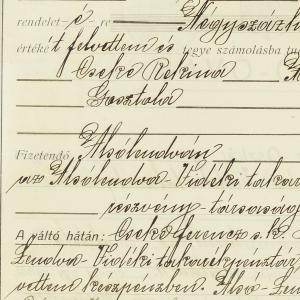 rendelet-é-re Négyszázh
értékét felvettem és tegye számolásba tud
Cseke Rekina
Gosztola
Fizetendő Alsólendván
az Alsólendva-Vidéki takar
részvény-társaság
A váltó hátán: Cseke Ferencz s. k.
Lendva-Vidéki takarékpénztár
vettem készpénzben. Alsó-Len